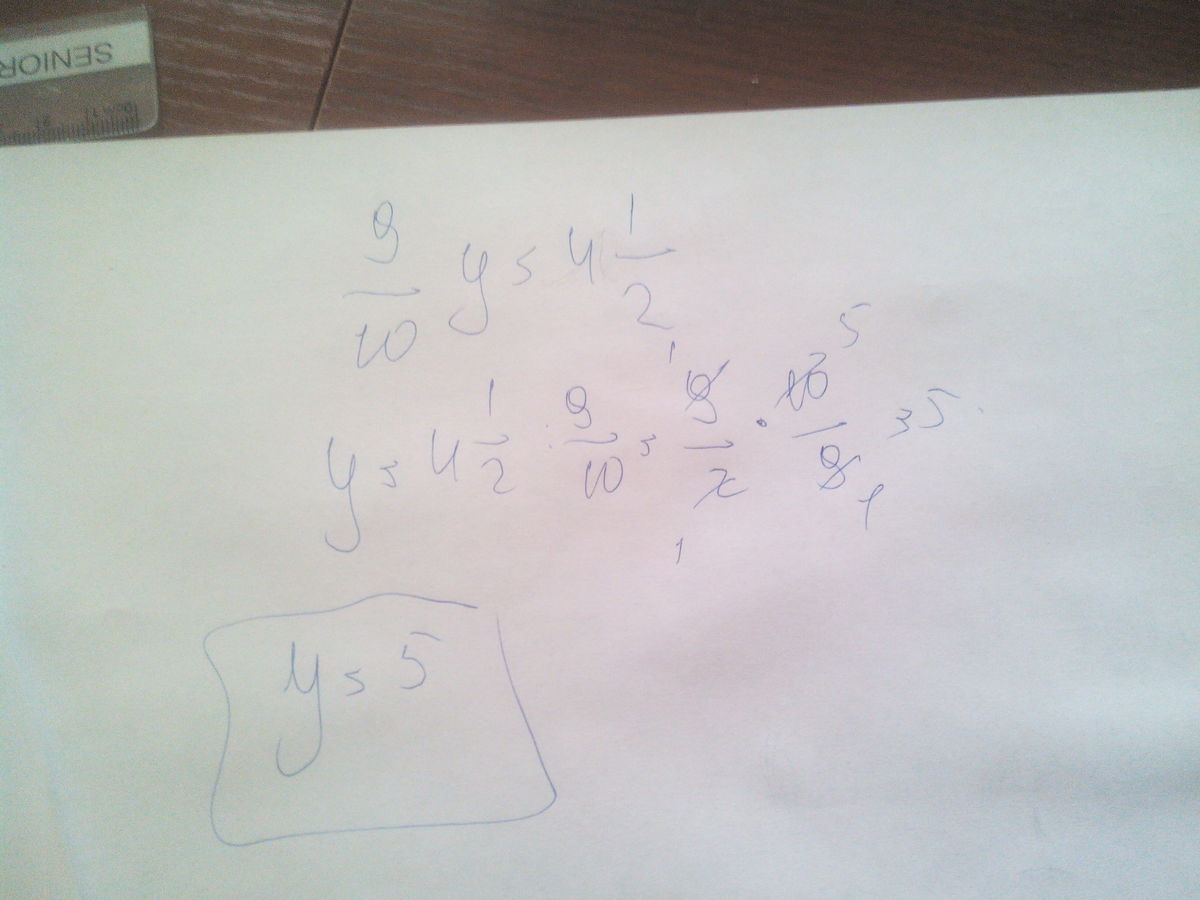 SENIOR
9/10 y = 4 1/2
y = 4 1/2 : 9/10 = 9/2 · 10/9 = 5
y = 5